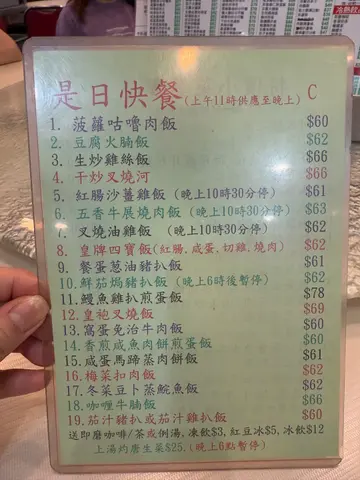 冷熱飲品
是日快餐(上午11時供應至晚上) C
1. 菠蘿咕嚕肉飯 $60
2. 豆腐火腩飯 $62
3. 生炒雞絲飯 $66
4. 干炒叉燒河 $66
5. 紅腸沙薑雞飯 (晚上10時30分停) $61
6. 五香牛展燒肉飯 (晚上10時30分停) $63
7. 叉燒油雞飯 (晚上10時30分停) $62
8. 皇牌四寶飯(紅腸,咸蛋,切雞,燒肉) $62
9. 餐蛋蔥油豬扒飯 $61
10. 鮮茄焗豬扒飯 (晚上6時後暫停) $62
11. 鰻魚雞扒煎蛋飯 $78
12. 皇袍叉燒飯 $69
13. 窩蛋免治牛肉飯 $60
14. 香煎咸魚肉餅煎蛋飯 $60
15. 咸蛋馬蹄蒸肉餅飯 $61
16. 梅菜扣肉飯 $62
17. 冬菜豆卜蒸鯇魚飯 $62
18. 咖喱牛腩飯 $66
19. 茄汁豬扒或茄汁雞扒飯 $60
送即磨咖啡/茶或例湯,凍飲$3,紅豆冰$5,冰飲$12
上湯灼唐生菜$25.(晚上6點暫停)